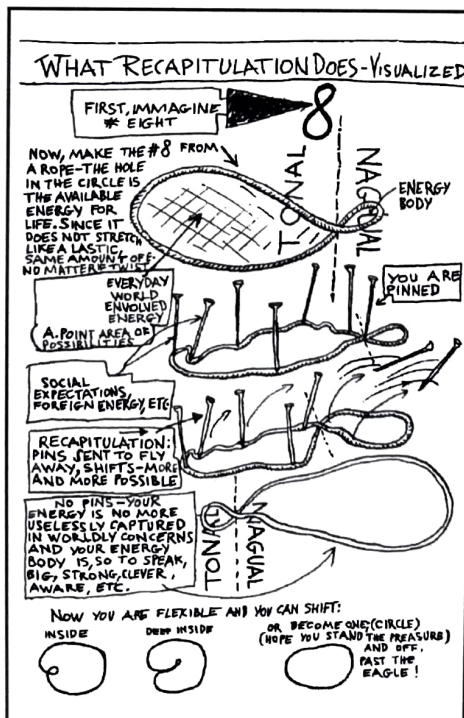 WHAT RECAPITULATION DOES-VISUALIZED
FIRST, IMMAGINE
* EIGHT
8
NOW, MAKE THE #8 FROM
A ROPE-THE HOLE
IN THE CIRCLE IS
THE AVAILABLE
ENERGY FOR
LIFE. SINCE IT
DOES NOT STRETCH
LIKE A LASTIC,
SAME AMOUNT OF E-
NO MATTER
TONAL
NAGUAL
ENERGY
BODY
EVERYDAY
WORLD
ENVOLVED
ENERGY
A. POINT AREA OF
POSSIBILITIES
YOU ARE
PINNED
SOCIAL
EXPECTATIONS,
FOREIGN ENERGY, ETC
RECAPITULATION:
PINS SENT TO FLY
AWAY, SHIFTS-MORE
AND MORE POSSIBLE
NO PINS-YOUR
ENERGY IS NO MORE
USELESSLY CAPTURED
IN WORLDLY CONCERNS
AND YOUR ENERGY
BODY IS, SO TO SPEAK,
BIG, STRONG, CLEVER,
AWARE, ETC.
TONAL
NAGUAL
NOW YOU ARE FLEXIBLE AND YOU CAN SHIFT:
INSIDE
DEEP INSIDE
OR BECOME ONE; (CIRCLE)
(HOPE YOU STAND THE PREASURE)
AND OFF,
PAST THE
EAGLE!